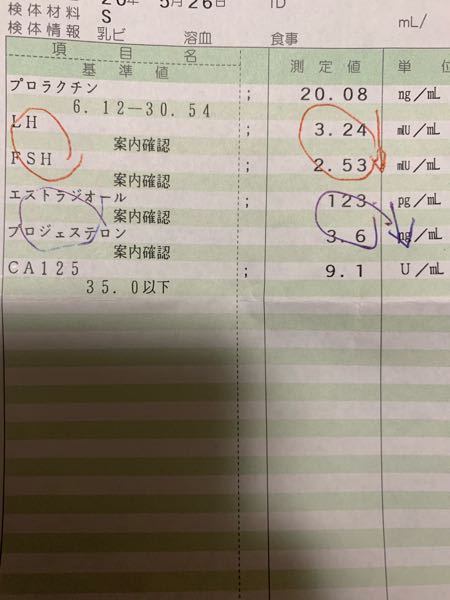 年 5月26日 ID
検体材料 S mL/
検体情報 乳ビ 溶血 食事
項目名 測定値 単位
基準値
プロラクチン ; 20.08 ng/mL
6.12-30.54
LH ; 3.24 mIU/mL
案内確認
FSH ; 2.53 mIU/mL
案内確認
エストラジオール ; 123 pg/mL
案内確認
プロジェステロン ; 3.6 ng/mL
案内確認
CA125 ; 9.1 U/mL
35.0以下